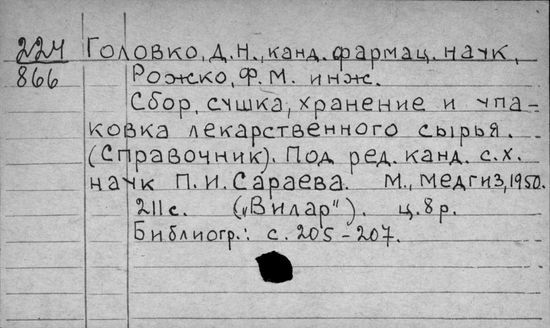 224 Головко, Д.Н., канд. фармац. наук,
866 Рожко, Ф.М. инж.
Сбор, сушка, хранение и упа-
ковка лекарственного сырья.
(Справочник). Под ред. канд. с.х.
наук П.И.Сараева. М., Медгиз, 1950.
211с. („Вилар"). ц.8р.
Библиогр.: с. 205-207.